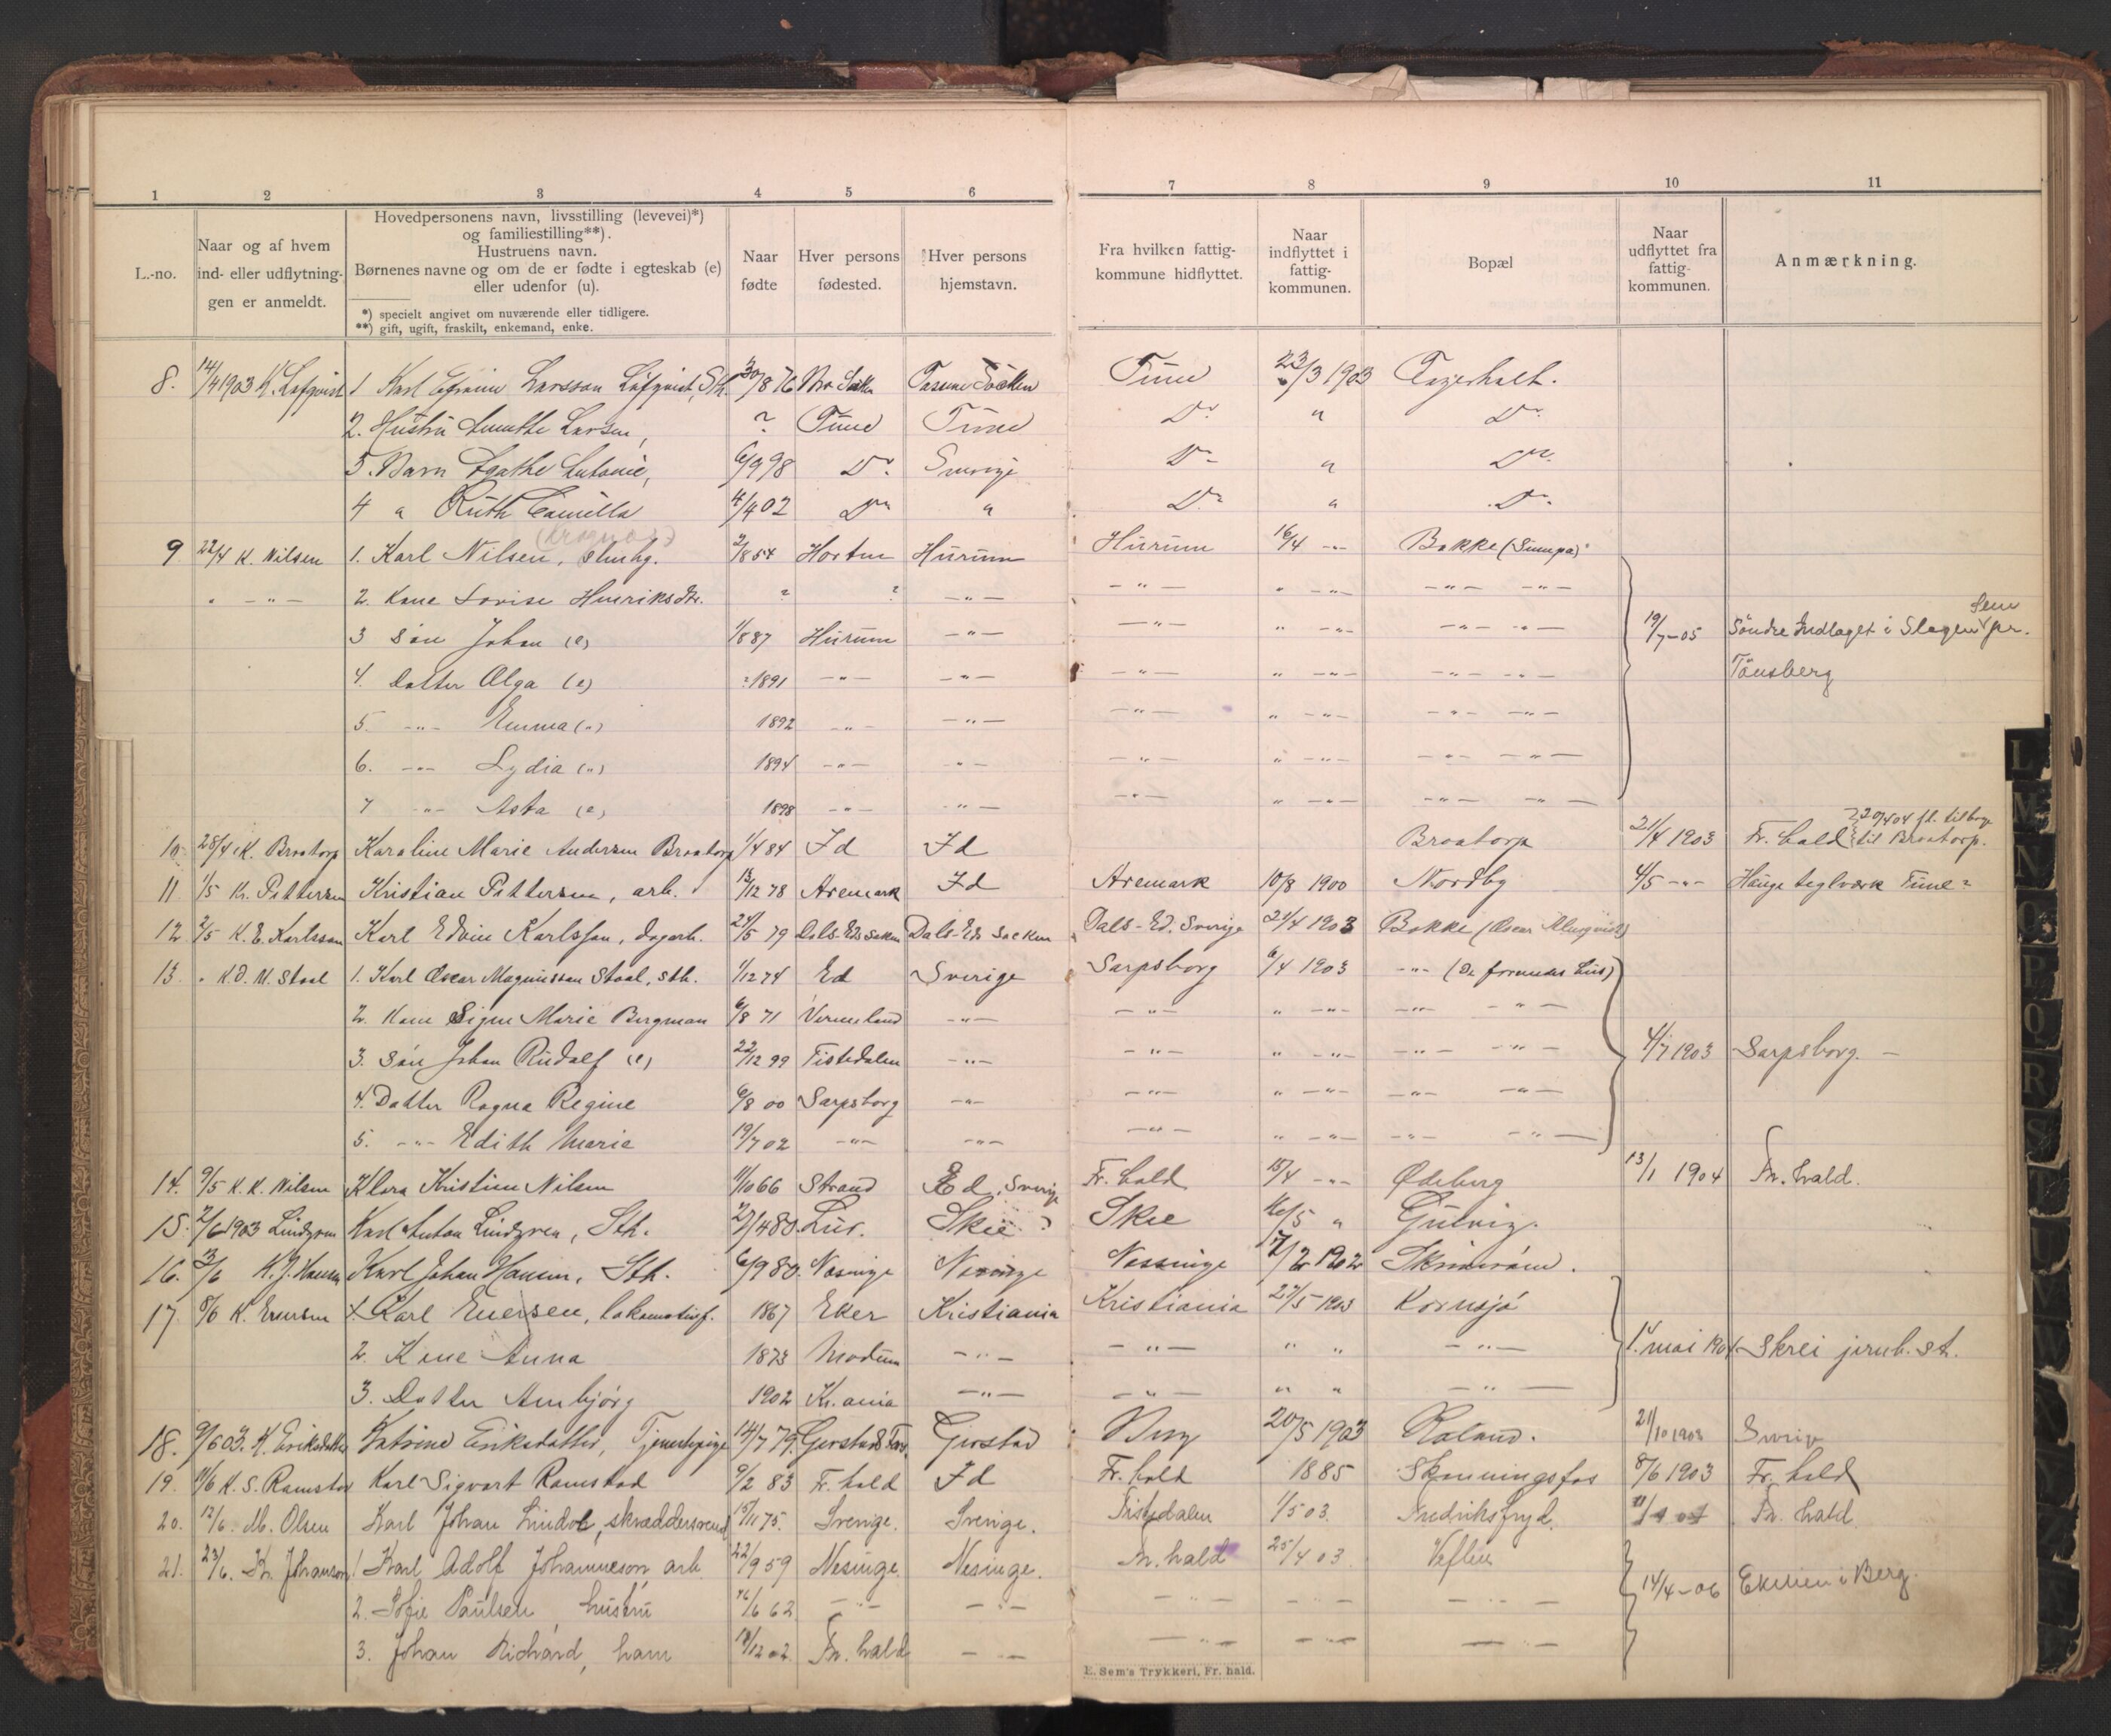 1 2 3 4 5 6 7 8 9 10 11
L.-no.
Naar og af hvem
ind- eller udflytnin-
gen er anmeldt.
Hovedpersonens navn, livsstilling (levevei)*)
og familiestilling**).
Hustruens navn.
Børnenes navne og om de er fødte i egteskab (e)
eller udenfor (u).
*) specielt angivet om nuværende eller tidligere.
**) gift, ugift, fraskilt, enkemand, enke.
Naar
fødte
Hver persons
fødested.
Hver persons
hjemstavn.
Fra hvilken fattig-
kommune hidflyttet.
Naar
indflyttet i
fattig-
kommunen.
Bopæl
Naar
udflyttet fra
fattig-
kommunen.
Anmærkning.
8. 14/4 1903 K. Løfqvist 1 Karl Efraim Larsson Löfqvist, Sth. 30/8 76 Tune 23/3 1903
2. Hustru Larsen, ? Tune Tune Do " Do
3. Barn Agathe Antonie, 6/9 98 Do Sverige Do " Do
4 " Ruth Camilla 4/4 02 Do " Do " Do
9 22/4 K. Nilsen 1. Karl Nilsen, stenhg. 2/8 54 Horten Hurum Hurum 16/4 -"- Bakke (Sumpa)
" -"- 2. Kone Lovise Henriksdtr. ? ? -"- -"- " -"- -"- -"-
3 Søn Johan (e) 1/8 87 Hurum -"- -"- " -"- -"- -"- 19/7-05 Söndre Indlaget i Slagen Sem pr.
4. Datter Olga (e) ? 1891 -"- -"- -"- " -"- -"- -"- Tönsberg
5. -"- Emma (") 1892 -"- -"- -"- " -"- -"- -"-
6. -"- Lydia (") 1894 -"- -"- -"- " -"- -"- -"-
7 -"- Asta (e) 1898 -"- -"- -"- " -"- -"- -"-
10 28/4 K. Bratorp Karoline Marie Andersen Bratorp 1/4 84 Id Id Bratorp 21/4 1903 Fr. hald 20/4 04 fl. tilbage til Bratorp.
11 1/5 Kr. Pettersen Kristian Pettersen, arb. 13/12 78 Aremark Id Aremark 10/8 1900 Nordby 4/5 -"- Hauge teglværk Tune ?
12 2/5 K. E. Karlsson Karl Edvin Karlsson, dagarb. 21/5 79 Dals-Eds socken Dals-Eds socken Dals-Ed. Sverige 21/4 1903 Bakke (Oscar Almqvist)
13. " K.O.M. Staal 1. Karl Oscar Magnusson Staal, sth. 1/12 74 Ed Sverige Sarpsborg 6/4 1903 -"- (De forenedes hus)
2. Kone Signe Marie Bergman 6/8 71 Vermeland -"- -"- " -"- -"- -"-
3. Søn Johan Rudolf (e) 22/12 99 Tistedalen -"- -"- " -"- -"- -"- 4/7 1903 Sarpsborg. -
4. Datter Ragna Regine 6/8 00 Sarpsborg -"- -"- " -"- -"- -"-
5. -"- Edith Marie 19/7 02 -"- -"- -"- " -"- -"- -"-
14. 9/5 K. K. Nilsen Klara Kristine Nilsen 11/10 66 Strand Ed, Sverige Fr. hald 15/4 -"- Ødeberg 13/1 1904 Fr. hald.
15. 2/6 1903 Lindgren Karl Anton Lindgren, Sth. 27/4 80 Lur. Skee ? Skee 16/5 "
16. 13/6 K. J. Hansen Karl Johan Hansen, Sth. 6/9 80. Nasinge Nasinge Nessinge 17/2 1902
17. 8/6 K. Enersen 1. Karl Enersen, lokomotivf. 1867 Eker Kristiania Kristiania 27/5 1903 Kornsjø
2. Kone Anna 1873 Modum -"- -"- " " -"- 1. mai 1904 Skrei jernb. st.
3. Datter Arnbjørg 1902 Kr.ania -"- -"- " " -"-
18. 9/6 03. K. Eriksdatter Katrine Eriksdatter, Tjenestepige 14/7 79. Gjerstad Berg 20/5 1903 21/10 1903 Sverige
19. 11/6 K. S. Ramstad Karl Sigvart Ramstad 9/2 83 Fr. hald Id Fr. hald 1885 Skonningsfos 8/6 1903 Fr. hald
20. 12/6. M. Olsen Karl Johan Lindoe, skræddersvend 15/11 75. Sverige. Sverige. Tistedalen 1/5 03. Fredriksfryd. Fr. hald
21. 23/6. K. Johanson 1 Karl Adolf Johanneson, arb 22/9 59 Nesinge. Nesinge. Fr. hald 25/4 03 Veflen
2. Sofie Paulsen, hustru 16/6 62 -"- -"- -"- -"- -"- 14/4-06 Ekelien i Berg.
3. Johan Richard, barn 18/12 02 Fr. hald -"- -"- -"- -"-
E. Sem's Trykkeri, Fr. hald.
L
M
N
O
P
Q
R
S
T
U
V
W